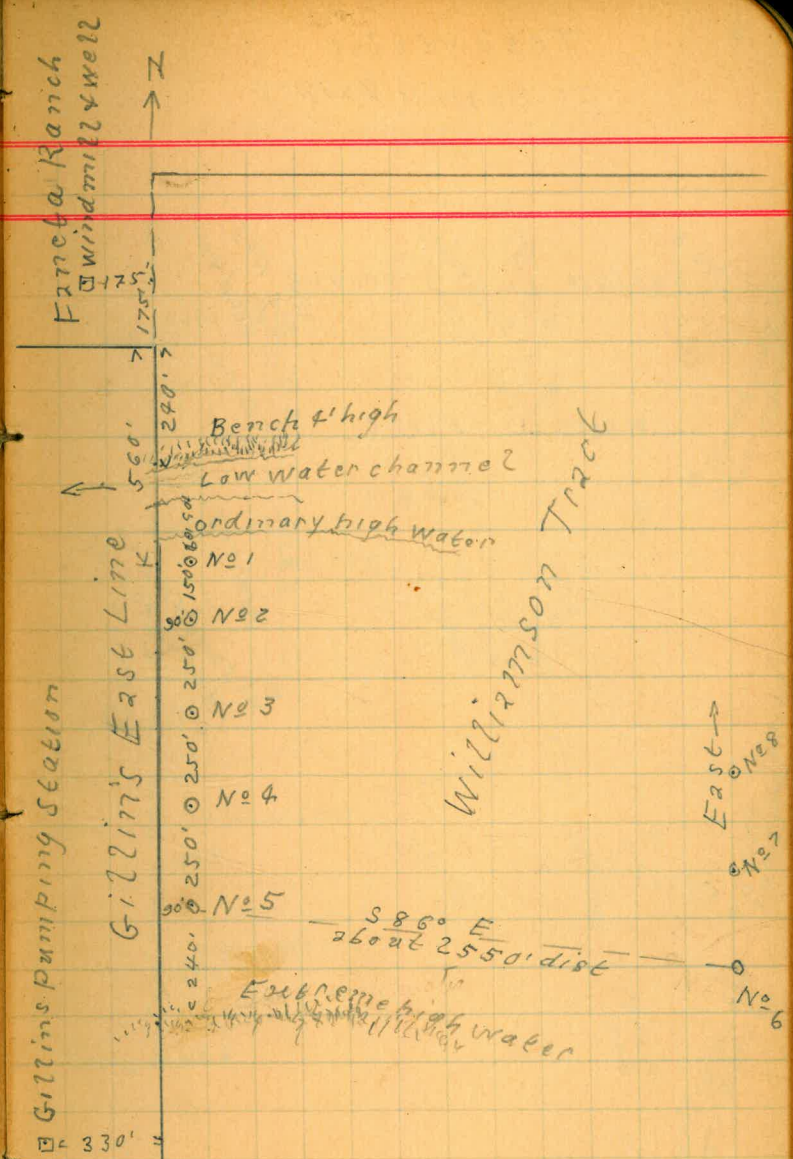 Fancta Ranch
windmill & well
175'
175'
N
240'
560'
Bench 4' high
Low water channel
ordinary high water
Gillin's East Line
Nº 1
150'
90'
Nº 2
250'
Nº 3
250'
Nº 4
250'
90'
Nº 5
240'
S 86° E
about 2550' dist
Extreme high water
Williamson Tract
East
Nº 8
Nº 7
Nº 6
Gillins Pumping Station
330'